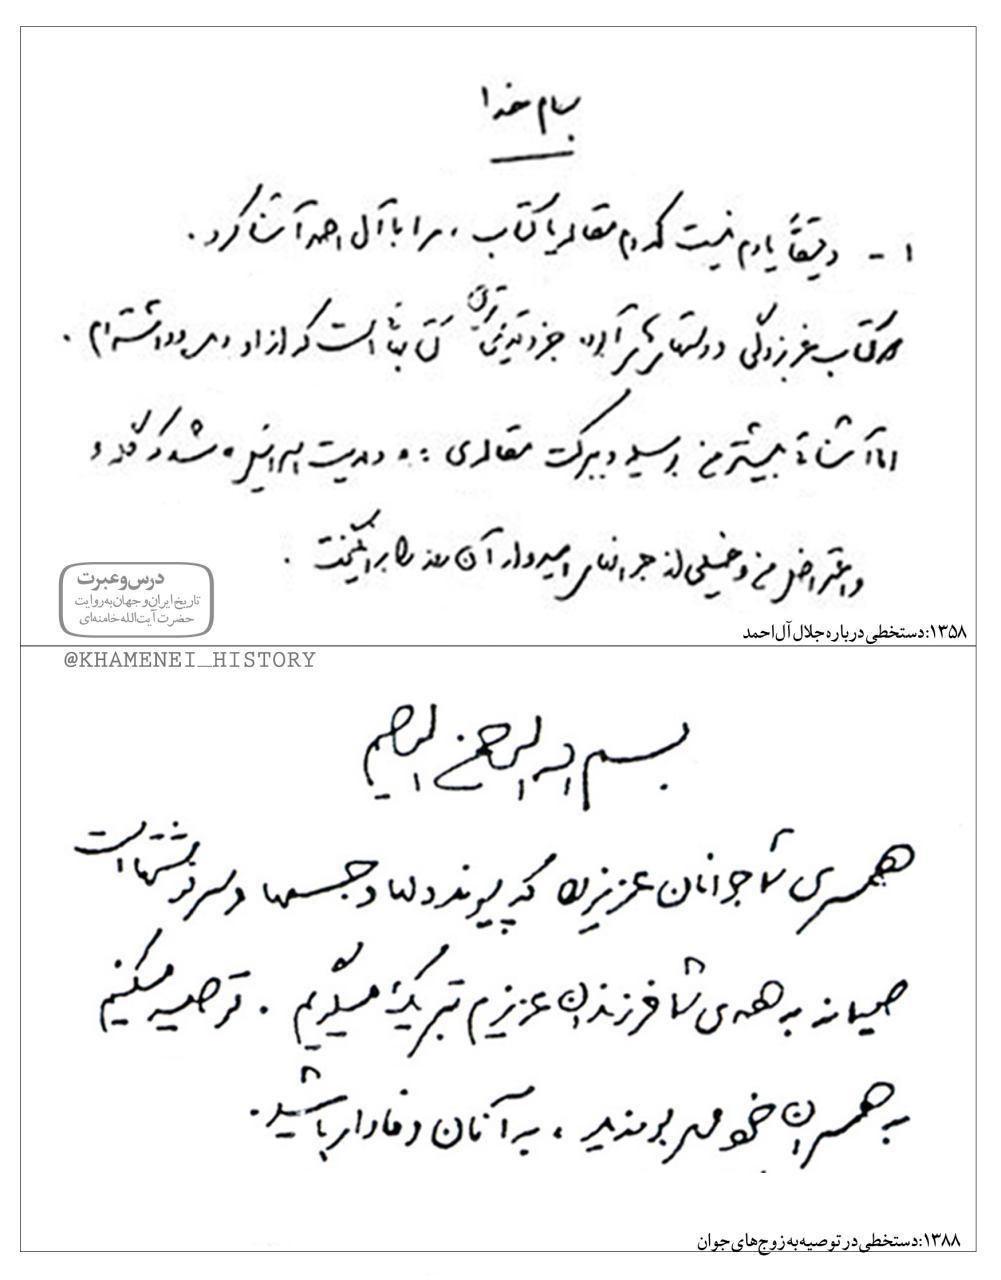 بنام خدا
۱ - دقیقاً یادم نیست کدام مقاله یا کتاب، مرا با آل احمد آشنا کرد.
دو کتاب غرب‌زدگی و دستهای آلوده جزو قدیمی‌ترین کتابهائی است که از او دیده و داشته‌ام.
اما آشنائی بیشتر من بوسیله و ببرکت مقاله‌ی : «ولایت اسرائیل» شد که گله و
و اعتراض من و خیلی از جوانهای امیدوار آن روز را برانگیخت.
درس و عبرت
تاریخ ایران و جهان به روایت
حضرت آیت‌الله خامنه‌ای
۱۳۵۸: دستخطی درباره جلال آل احمد
@KHAMENEI_HISTORY
بسم الله الرحمن الرحیم
همسری شما جوانان عزیز را که پیوند دلها و جسمها و سرنوشتهاست
صمیمانه به همه‌ی شما فرزندان عزیزم تبریک میگویم. توصیه میکنیم
به همسران خود مهر بورزید، به آنان وفادار باشید.
۱۳۸۸: دستخطی در توصیه به زوج‌های جوان